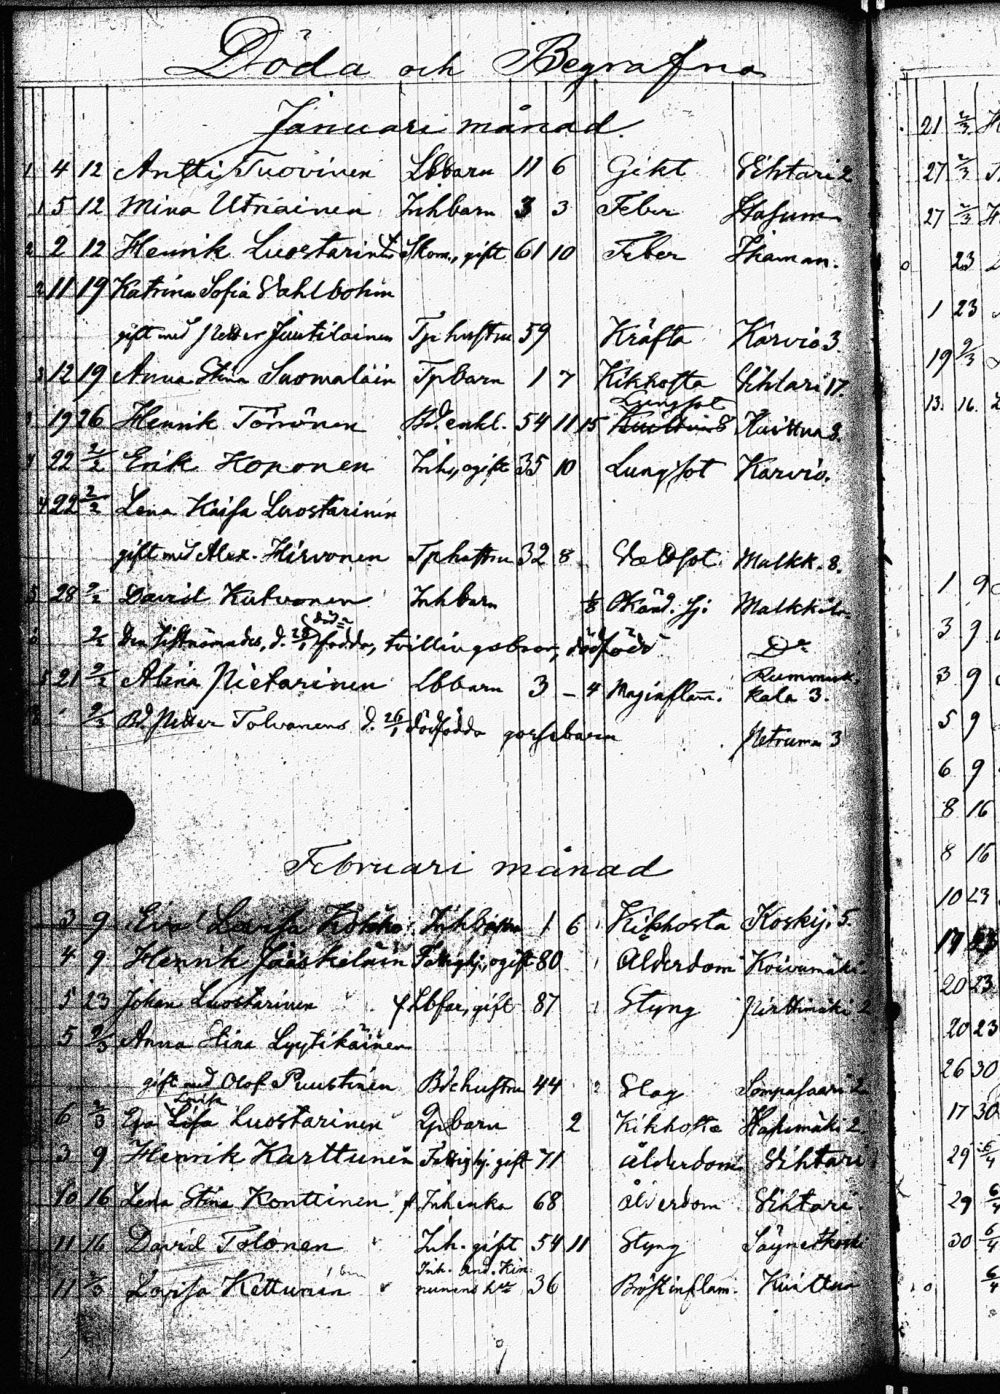 Döda och Begrafna
Januari månad.
1 4 12 Antti Tuovinen Lbbarn 11 6 Gikt Vihtari 2
1 5 12 Mina Utriainen Inhbarn 3 3 Feber
2 2 12 Henrik Luostarinen gift 61 10 Feber
2 11 19 Katrina Sofia Vahlbohm
gift med Petter Juutilainen Tjenhustru 59 Kräfta Karvio 3.
3 12 19 Anna Stina Suomalain Tpbarn 1 7 Kikhosta Vihtari 17.
Lungsot
3 19 26 Henrik Törrönen Bd. enkl. 54 11 15 Kuittua 3.
4 22 2/2 Erik Koponen Inh., ogift 35 10 Lungsot Karvio.
4 22 2/2 Lena Kaisa Luostarinen
gift med Alex. Hirvonen Tphustru 32 8 Vadsot Malkk. 8.
5 28 9/2 David Kutvonen Inhbarn 1/8 Okänd. sj. Malkkila
död
9/2 den sistnämndes, d. 28/1 födda, tvillingsbror, dödföd Do
5 21 9/2 Alina Pietarinen Lbbarn 3 - 4 Maginflam. Rummuk.
kala 3.
9/2 Bd. Petter Tolvanens d. 26/1 dödfödda gossebarn Petruma 3
Februari månad
3 9 Eva Lovisa Inhbarn 1 6 Kikhosta Koskij. 5.
4 9 Henrik Jääskeläin Fattighj., ogift 80 Ålderdom Koivumäki.
5 23 Johan Luostarinen f Lbfar, gift 87 Styng Pirttimäki 2
5 2/3 Anna Stina Lyytikäinen
gift med Olof Puustinen Bdehustru 44 Slag Sompasaari 2
Lovisa
6 2/3 Eva Luostarinen Tpbarn 2 Kikhosta Hasumäki 2
3 9 Henrik Karttunen Fattighj. gift 71 Ålderdom Vihtari
10 16 Lena Stina Konttinen f Inhenka 68 Ålderdom Vihtari.
11 16 David Tolonen Inh. gift 54 11 Styng Säynetkoski
Inh. And. Kin-
11 2/3 Lovisa Kettunen nunens h:u 36 Bröstinflam. Kuittua
21 2/3
27 2/3
27 2/3
23
1 23
19 9/3
13. 16.
1 9
3 9
3 9
5 9
6 9
8 16
8 16
10 23
17 23
20 23
20 23
26 30
17 30
29 6/4
29 6/4
30 6/4
6/4